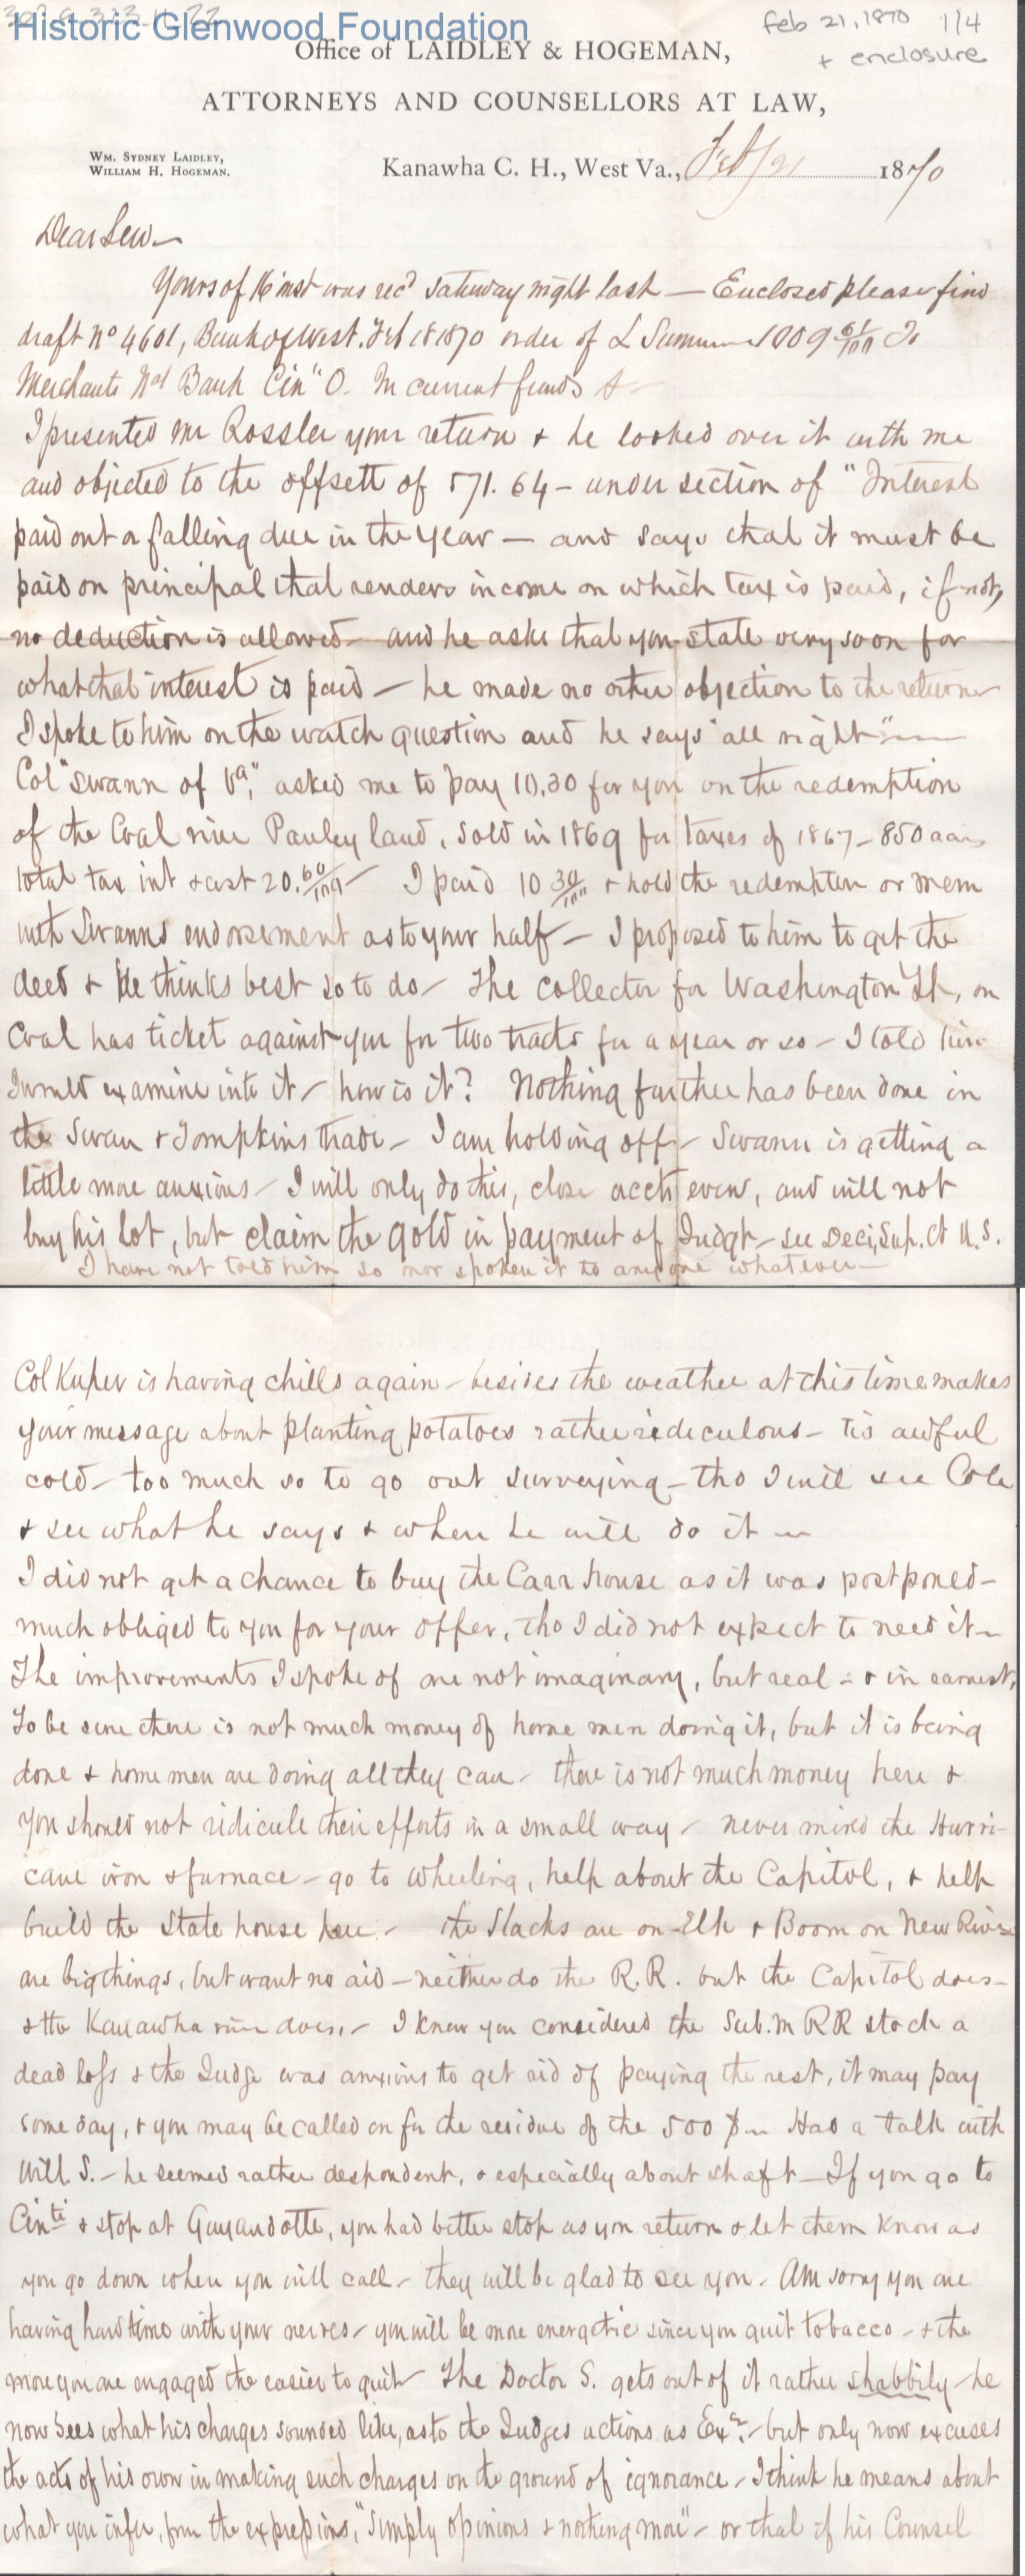 Historic Glenwood Foundation
Feb 21, 1870 1/4
+ enclosure
Office of LAIDLEY & HOGEMAN,
ATTORNEYS AND COUNSELLORS AT LAW,
WM. SYDNEY LAIDLEY,
WILLIAM H. HOGEMAN.
Kanawha C. H., West Va., Feb/21 1870
Dear Lew—
Yours of 16 inst was rec'd Saturday night last — Enclosed please find
draft No 4601, Bank of West. Feb 18 1870 order of L Summers 1009 61/100 To
Merchants Nat Bank Cin" O. In current funds &
I presented Mr Rossler your return & he looked over it with me
and objected to the offsett of 571.64 – under section of "Interest
paid out or falling due in the year — and says that it must be
paid on principal that renders income on which tax is paid, if not,
no deduction is allowed – and he asks that you state very soon for
what that interest is paid – he made no other objection to the return
I spoke to him on the watch question and he says "all right" —
Col "Swann of Va," asked me to pay 10.30 for you on the redemption
of the Coal river Pauley land, sold in 1869 for taxes of 1867 – 850 acres
total tax int & cost 20.60/100 – I paid 10 30/100 & hold the redemption or mem
with Swanns endorsement as to your half – I proposed to him to get the
deed & He thinks best so to do – The collector for Washington , on
Coal has ticket against you for two tracts for a year or so – I told him
I would examine into it – how is it? Nothing further has been done in
the Swan & Tompkins trade – I am holding off – Swann is getting a
little more anxious – I will only do this, close accts even, and will not
buy his lot, but claim the gold in payment of Judgt – see Deci, Sup. Ct U.S.
I have not told him so nor spoken it to any one whatever —
Col is having chills again – besides the weather at this time makes
your message about planting potatoes rather rediculous – tis awful
cold – too much so to go out surveying – tho I will see Cole
& see what he says & when he will do it —
I did not get a chance to buy the Carr house as it was postponed –
much obliged to you for your offer, tho I did not expect to need it –
The improvements I spoke of are not imaginary, but real – & in earnest,
to be sure there is not much money of home men doing it, but it is being
done & home men are doing all they can – there is not much money here &
you should not ridicule their efforts in a small way – never mind the Hurri-
cane iron & furnace – go to Wheeling, help about the Capitol, & help
build the State house here – the Slacks are on Elk & Boom on New River
are big things, but want no aid – neither do the R.R. but the Capitol does –
& the Kanawha river does – I knew you considered the Sub. M RR stock a
dead loss & the Judge was anxious to get rid of paying the rest, it may pay
some day, & you may be called on for the residue of the 500 $ – Had a talk with
Will S. – he seemed rather despondent, & especially about shaft – If you go to
Cinti & stop at Guyandotte, you had better stop as you return & let them know as
you go down when you will call – they will be glad to see you. Am sorry you are
having hard time with your nerves – you will be more energetic since you quit tobacco – & the
more you are engaged the easier to quit The Doctor S. gets out of it rather shabbily – he
now sees what his charges sounded like, as to the Judges actions as Exr. – but only now excuses
the acts of his own in making such charges on the ground of ignorance – I think he means about
what you infer, from the expressions, "Simply opinions & nothing more" – or that of his Counsel